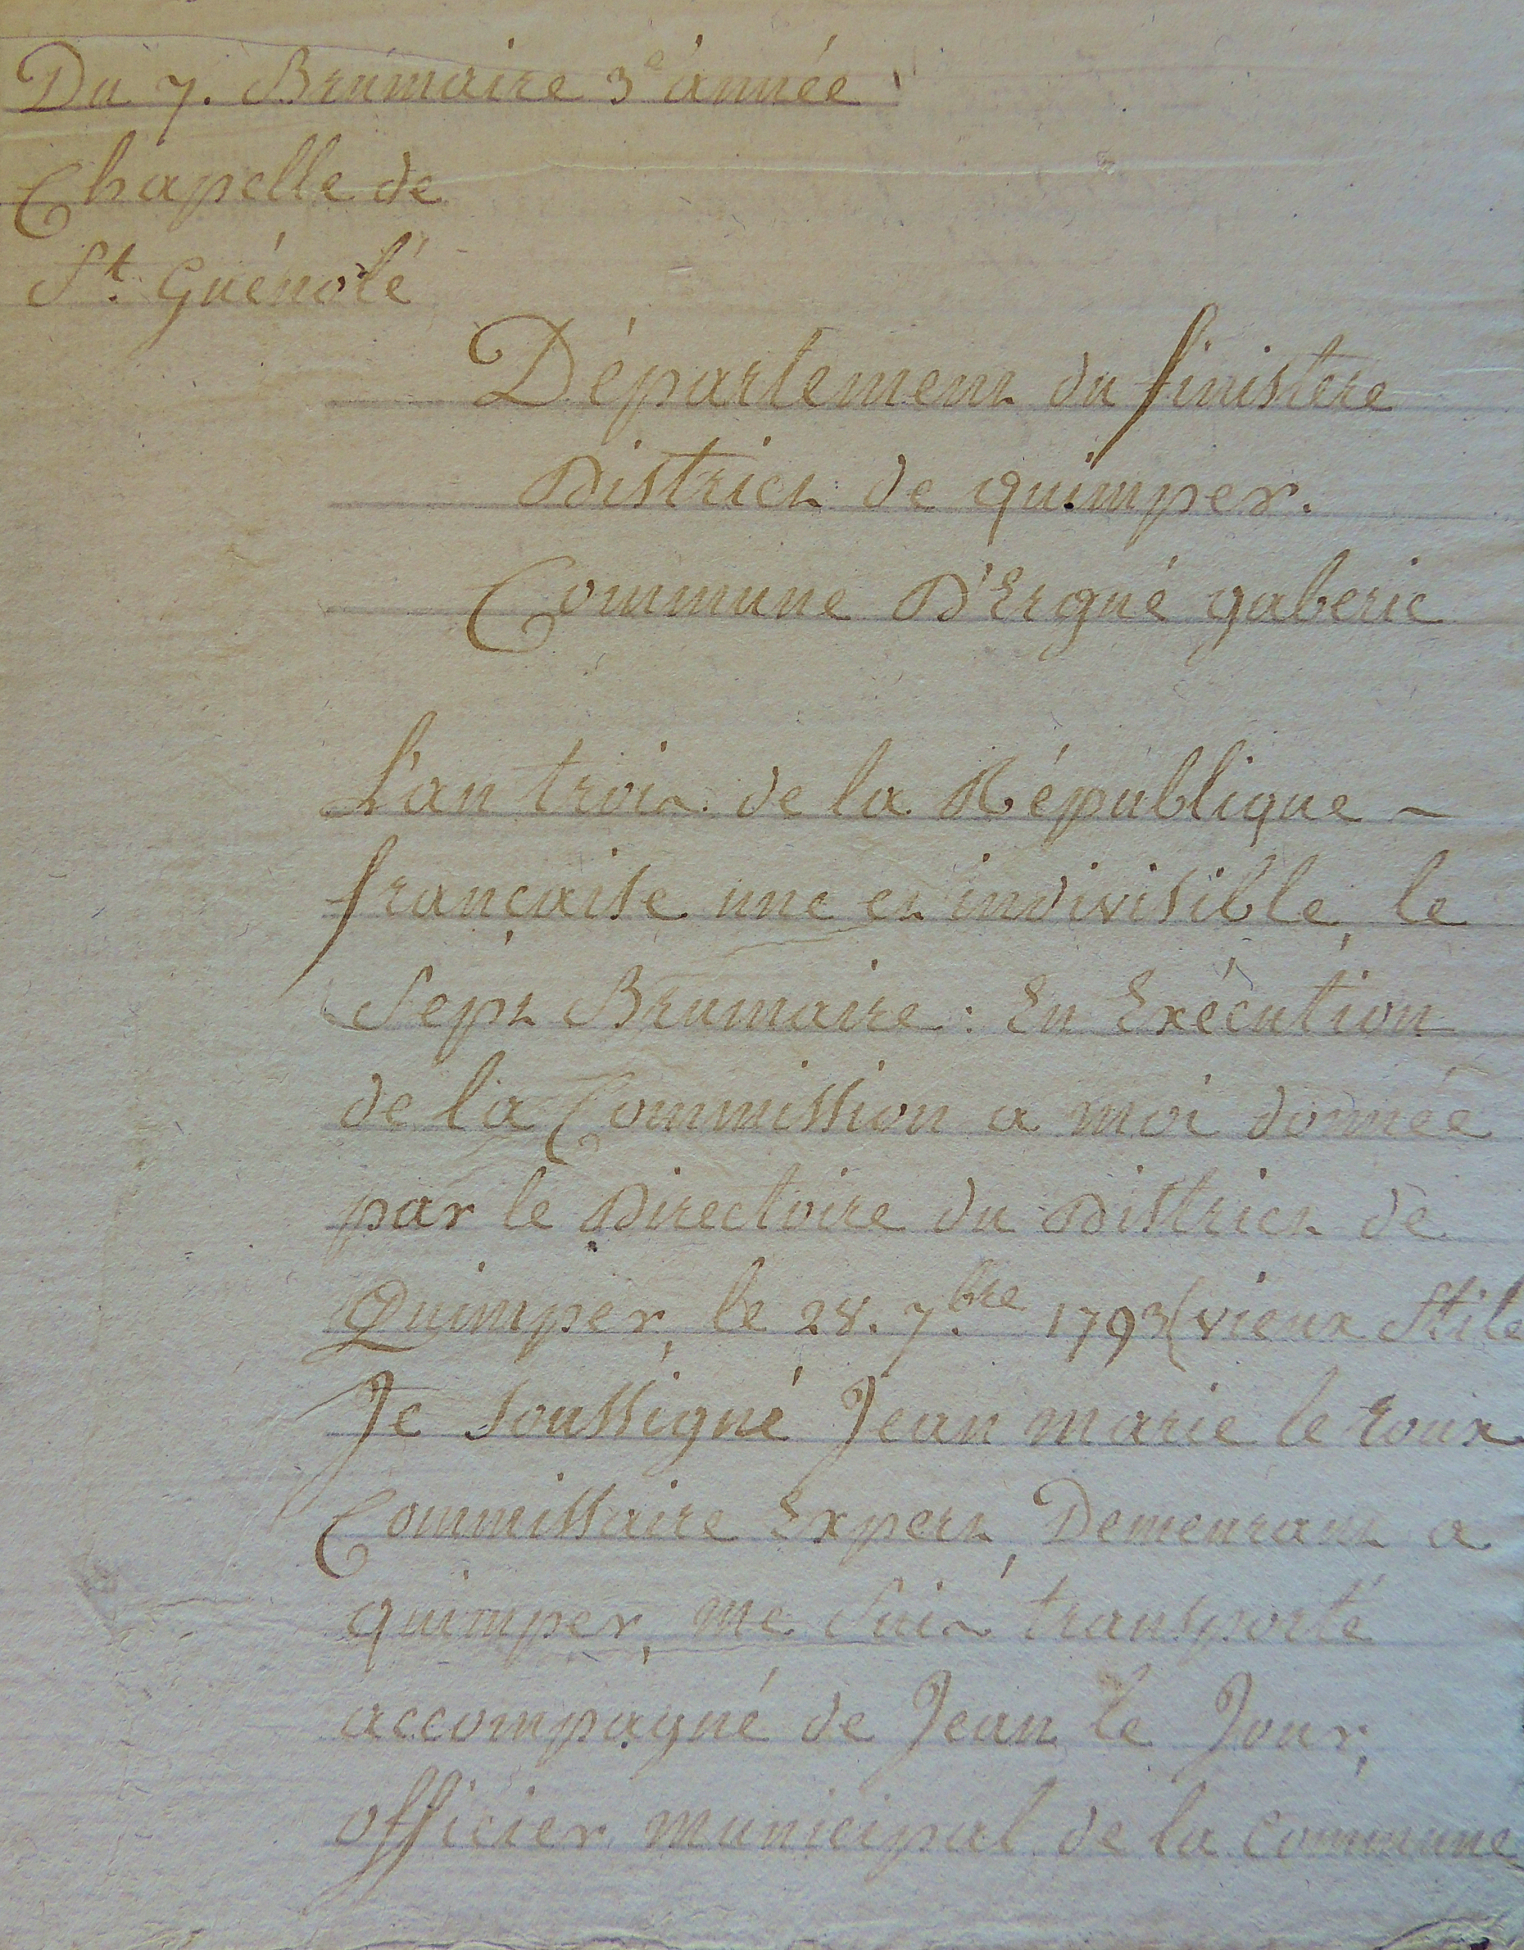 Du 7. Brumaire 3e année
Chapelle de
St. Guénolé
Département du finistere
District de quimper.
Commune D'Ergué gaberic
L'an trois de la République ~
française une et indivisible, le
Sept Brumaire : En Exécution
de la Commission a moi donnée
par le Directoire du District de
Quimper, le 28. 7.bre 1793 (vieux Stile
Je soussigné Jean marie le roux
Commissaire Expert, Demeurant a
quimper, me suis transporté
accompagné de Jean le Jour,
officier municipal de la commune